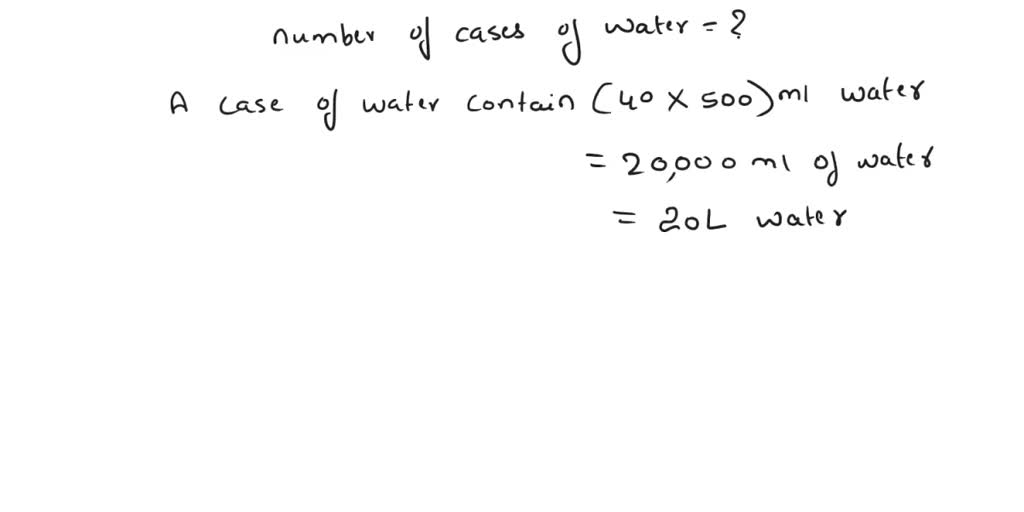 number of cases of water = ?
A case of water contain (40 X 500) ml water
= 20,000 ml of water
= 20L water